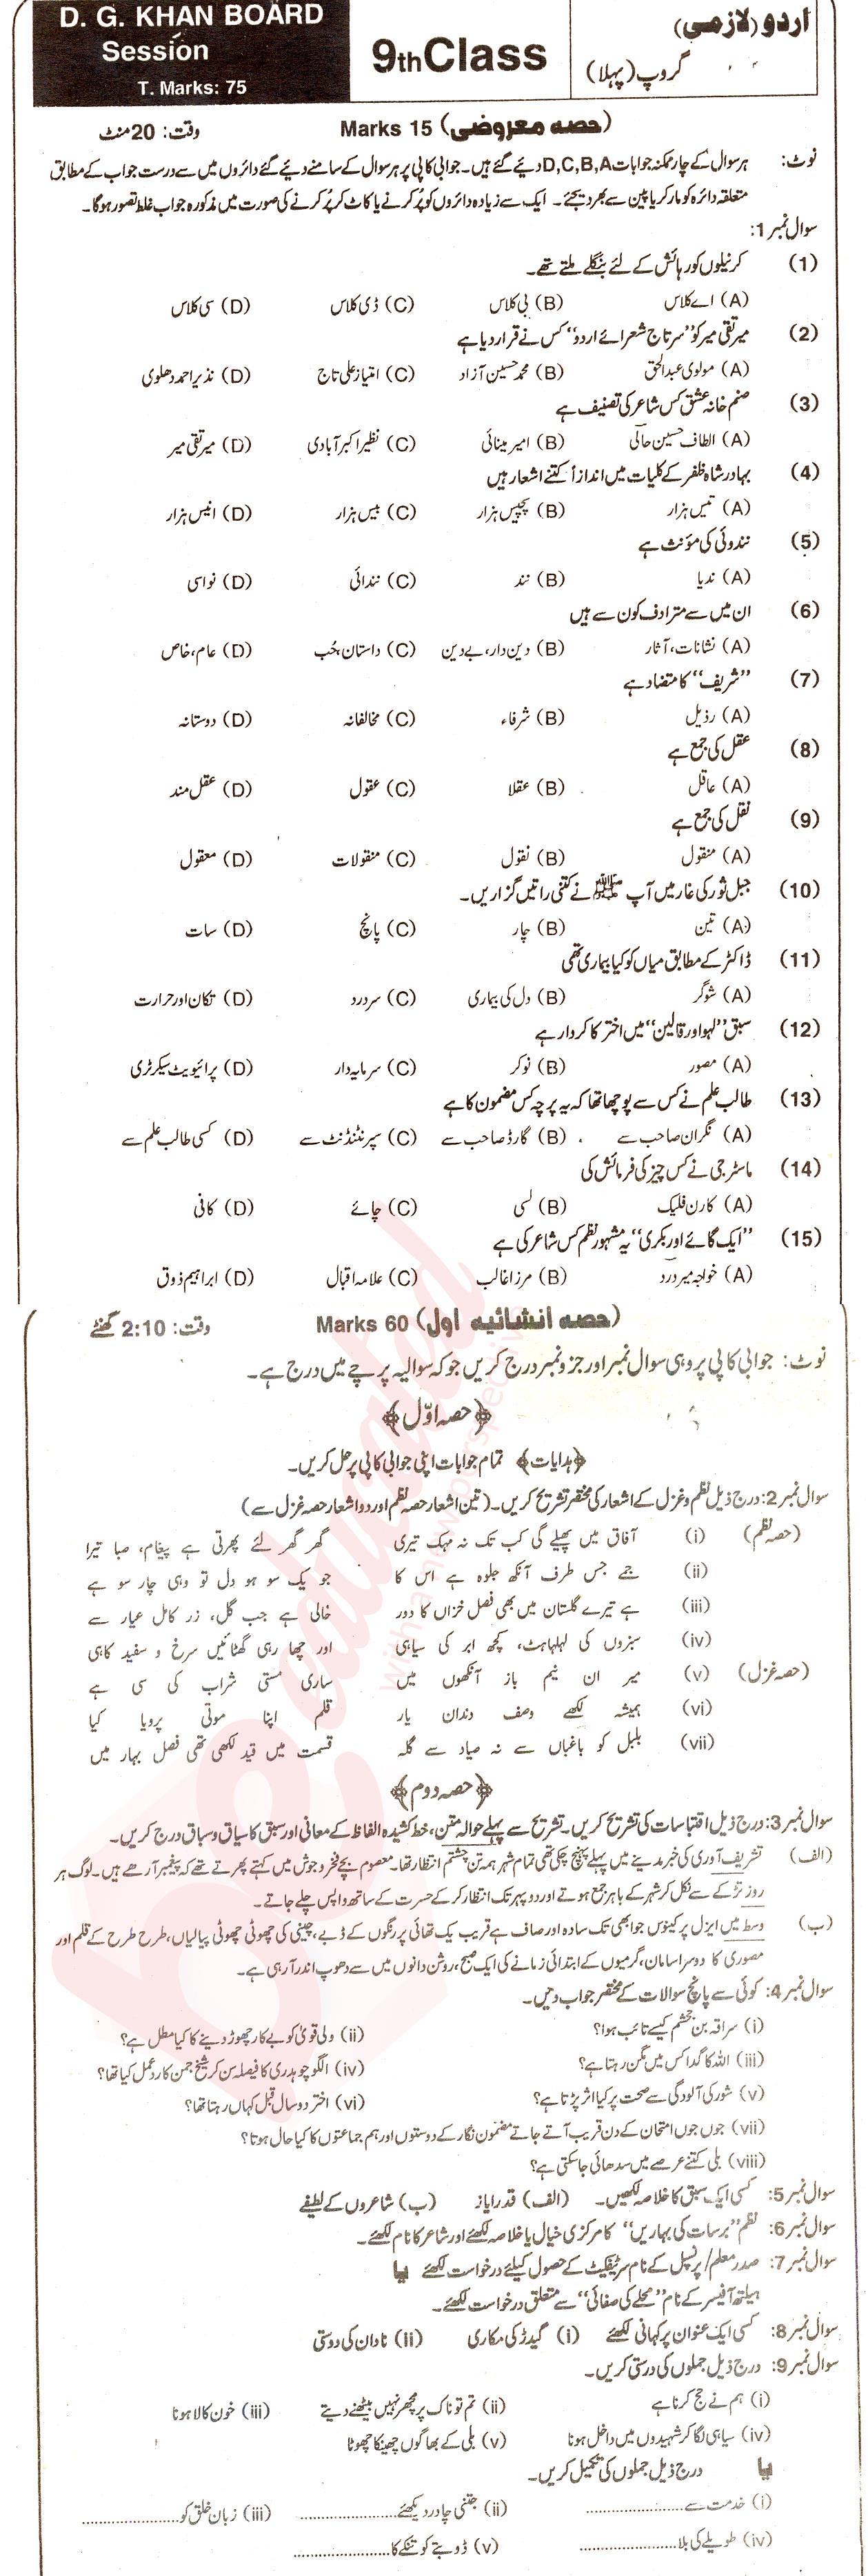 D. G. KHAN BOARD
Session
T. Marks: 75
9thClass
اردو (لازمی)
گروپ (پہلا)
(حصہ معروضی) Marks 15 وقت: 20 منٹ
نوٹ: ہر سوال کے چار ممکنہ جوابات D,C,B,A دیئے گئے ہیں۔ جوابی کاپی پر ہر سوال کے سامنے دیئے گئے دائروں میں سے درست جواب کے مطابق
متعلقہ دائرہ کو مارکر یا پین سے بھر دیجئے۔ ایک سے زیادہ دائروں کو پُر کرنے یا کاٹ کر پُر کرنے کی صورت میں مذکورہ جواب غلط تصور ہوگا۔
سوال نمبر 1:
(1) کرنیلوں کو رہائش کے لئے بنگلے ملتے تھے۔
(A) اے کلاس (B) بی کلاس (C) ڈی کلاس (D) سی کلاس
(2) میر تقی میر کو ”سرتاج شعرائے اردو“ کس نے قرار دیا ہے
(A) مولوی عبدالحق (B) محمد حسین آزاد (C) امتیاز علی تاج (D) نذیر احمد دھلوی
(3) صنم خانہ عشق کس شاعر کی تصنیف ہے
(A) الطاف حسین حالی (B) امیر مینائی (C) نظیر اکبر آبادی (D) میر تقی میر
(4) بہادر شاہ ظفر کے کلیات میں اندازاً کتنے اشعار ہیں
(A) تیس ہزار (B) پچیس ہزار (C) بیس ہزار (D) انیس ہزار
(5) نندوئی کی مؤنث ہے
(A) ندیا (B) نند (C) نندائی (D) نواسی
(6) ان میں سے مترادف کون سے ہیں
(A) نشانات، آثار (B) دین دار، بے دین (C) داستان، حُب (D) عام، خاص
(7) ”شریف“ کا متضاد ہے
(A) رذیل (B) شرفاء (C) مخالفانہ (D) دوستانہ
(8) عقل کی جمع ہے
(A) عاقل (B) عقلا (C) عقول (D) عقل مند
(9) نقل کی جمع ہے
(A) منقول (B) نقول (C) منقولات (D) معقول
(10) جبل ثور کی غار میں آپ ﷺ نے کتنی راتیں گزاریں۔
(A) تین (B) چار (C) پانچ (D) سات
(11) ڈاکٹر کے مطابق میاں کو کیا بیماری تھی
(A) شوگر (B) دل کی بیماری (C) سر درد (D) تکان اور حرارت
(12) سبق ”لہو اور قالین“ میں اختر کا کردار ہے
(A) مصور (B) نوکر (C) سرمایہ دار (D) پرائیویٹ سیکرٹری
(13) طالب علم نے کس سے پوچھا تھا کہ یہ پرچہ کس مضمون کا ہے
(A) نگران صاحب سے (B) گارڈ صاحب سے (C) سپرنٹنڈنٹ سے (D) کسی طالب علم سے
(14) ماسٹر جی نے کس چیز کی فرمائش کی
(A) کارن فلیک (B) لسی (C) چائے (D) کافی
(15) ”ایک گائے اور بکری“ یہ مشہور نظم کس شاعر کی ہے
(A) خواجہ میر درد (B) مرزا غالب (C) علامہ اقبال (D) ابراہیم ذوق
(حصہ انشائیہ اول) Marks 60 وقت: 2:10 گھنٹے
نوٹ: جوابی کاپی پر وہی سوال نمبر اور جزو نمبر درج کریں جو کہ سوالیہ پرچے میں درج ہے۔
﴿حصہ اوّل﴾
﴿ہدایات﴾ تمام جوابات اپنی جوابی کاپی پر حل کریں۔
سوال نمبر 2: درج ذیل نظم و غزل کے اشعار کی مختصر تشریح کریں۔ (تین اشعار حصہ نظم اور دو اشعار حصہ غزل سے)
(حصہ نظم) (i) آفاق میں پھیلے گی کب تک نہ مہک تیری گھر گھر لئے پھرتی ہے پیغام، صبا تیرا
(ii) جمے جس طرف آنکھ جلوہ ہے اس کا جو یک سو ہو دل تو وہی چار سو ہے
(iii) ہے تیرے گلستان میں بھی فصل خزاں کا دور خالی ہے جب گل، زر کامل عیار سے
(iv) سبزوں کی لہلہاہٹ، کچھ ابر کی سیاہی اور چھا رہی گھٹائیں سرخ و سفید کاہی
(حصہ غزل) (v) میر ان نیم باز آنکھوں میں ساری مستی شراب کی سی ہے
(vi) ہمیشہ لکھے وصف دندان یار قلم اپنا موتی پرویا کیا
(vii) بلبل کو باغباں سے نہ صیاد سے گلہ قسمت میں قید لکھی تھی فصل بہار میں
﴿حصہ دوم﴾
سوال نمبر 3: درج ذیل اقتباسات کی تشریح کریں۔ تشریح سے پہلے حوالہ متن، خط کشیدہ الفاظ کے معانی اور سبق کا سیاق و سباق درج کریں۔
(الف) تشریف آوری کی خبر مدینے میں پہلے پہنچ چکی تھی تمام شہر ہمہ تن چشم انتظار تھا۔ معصوم بچے فخر و جوش میں کہتے پھرتے تھے کہ پیغمبر آرہے ہیں۔ لوگ ہر
روز تڑکے سے نکل کر شہر کے باہر جمع ہوتے اور دوپہر تک انتظار کر کے حسرت کے ساتھ واپس چلے جاتے۔
(ب) وسط میں ایزل پر کینوس جو ابھی تک سادہ اور صاف ہے قریب یک تھائی پر رنگوں کے ڈبے، چینی کی چھوٹی چھوٹی پیالیاں، طرح طرح کے قلم اور
مصوری کا دوسرا سامان، گرمیوں کے ابتدائی زمانے کی ایک صبح، روشن دانوں میں سے دھوپ اندر آرہی ہے۔
سوال نمبر 4: کوئی سے پانچ سوالات کے مختصر جواب دیں۔
(i) سراقہ بن جعشم کیسے تائب ہوا؟ (ii) ولی قویٰ کو بے کار چھوڑ دینے کا کیا مطل ہے؟
(iii) اللہ کا گدا کس میں مگن رہتا ہے؟ (iv) الگو چوہدری کا فیصلہ سن کر شیخ جمن کا ردعمل کیا تھا؟
(v) شور کی آلودگی سے صحت پر کیا اثر پڑتا ہے؟ (vi) اختر دو سال قبل کہاں رہتا تھا؟
(vii) جوں جوں امتحان کے دن قریب آتے جاتے مضمون نگار کے دوستوں اور ہم جماعتوں کا کیا حال ہوتا؟
(viii) بلی کتنے عرصے میں سدھائی جاسکتی ہے؟
سوال نمبر 5: کسی ایک سبق کا خلاصہ لکھیں۔ (الف) قدر ایاز (ب) شاعروں کے لطیفے
سوال نمبر 6: نظم ”برسات کی بہاریں“ کا مرکزی خیال یا خلاصہ لکھئے اور شاعر کا نام لکھئے۔
سوال نمبر 7: صدر معلم/پرنسپل کے نام سرٹیفکیٹ کے حصول کیلئے درخواست لکھئے یا
ہیلتھ آفیسر کے نام ”محلے کی صفائی“ سے متعلق درخواست لکھئے۔
سوال نمبر 8: کسی ایک عنوان پر کہانی لکھئے (i) گیدڑ کی مکاری (ii) نادان کی دوستی
سوال نمبر 9: درج ذیل جملوں کی درستی کریں۔
(i) ہم نے حج کرنا ہے (ii) تم تو ناک پر مچھر نہیں بیٹھنے دیتے (iii) خون کالا ہونا
(iv) سیاہی لگا کر شہیدوں میں داخل ہونا (v) بلی کے بھاگوں چھینکا چھوٹا
یا درج ذیل جملوں کی تکمیل کریں۔
(i) خدمت سے.................... (ii) جتنی چادر دیکھئے.................... (iii) زبان خلق کو....................
(iv) طویلے کی بلا.................... (v) ڈوبتے کو تنکے کا....................
beeducated
with a new perspective